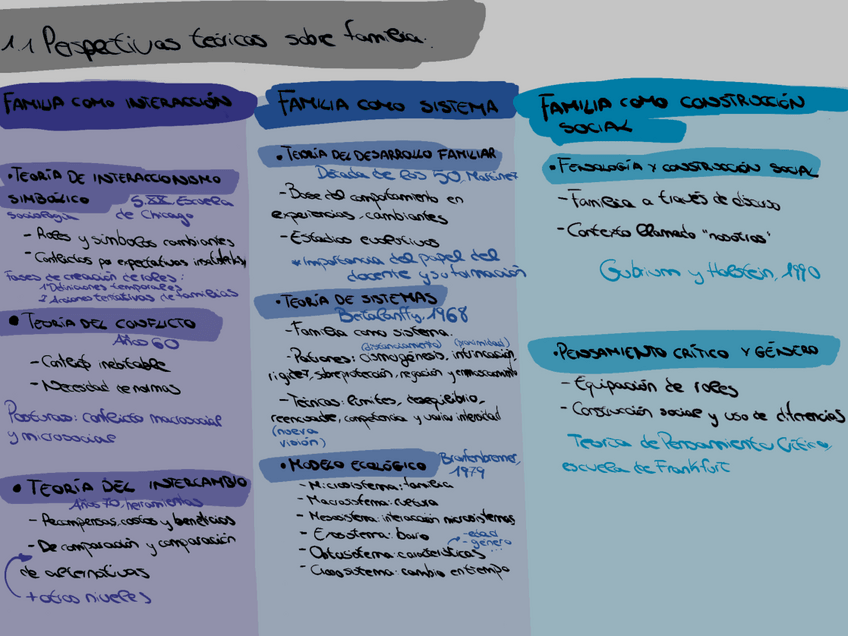 1.1 Perspectivas teóricas sobre familia.
FAMILIA COMO INTERACCIÓN
• TEORÍA DE INTERACCIONISMO
SIMBÓLICO S.XX. Escuela
sociología de Chicago
- Roles y símbolos cambiantes
- Conflictos por expectativas
Fases de creación de roles:
1 Definiciones temporales
2 Acciones tentativas de familias
• TEORÍA DEL CONFLICTO
Años 60
- Conflicto inevitable
- Necesidad de normas
Posturas: conflicto macrosocial
y microsocial
• TEORÍA DEL INTERCAMBIO
Años 70, herramientas
- Recompensas, costos y beneficios
- De comparación y comparación
de alternativas
+ otros niveles
FAMILIA COMO SISTEMA
• TEORÍA DEL DESARROLLO FAMILIAR
Década de los 50, Martínez
- Base del comportamiento en
experiencias cambiantes
- Estadios evolutivos
* Importancia del papel del
docente y su formación
• TEORÍA DE SISTEMAS
Bertalanffy, 1968
- Familia como sistema.
(distanciamiento) (proximidad)
- Patrones: cismogénesis, intrincación,
rigidez, sobreprotección, negación y
- Técnicas: límites, desequilibrio,
reencuadre, competencia y variar intensidad
(nueva
visión)
• MODELO ECOLÓGICO Bronfenbrenner,
1979
- Microsistema: familia
- Macrosistema: cultura
- Mesosistema: interacción microsistemas
- Exosistema: barrio
- edad
- género
- Ontosistema: características
- Cronosistema: cambio en tiempo
FAMILIA COMO CONSTRUCCIÓN
SOCIAL
• Y CONSTRUCCIÓN SOCIAL
- Familia a través de discurso
- Contexto llamado "nosotros"
Gubrium y Holstein, 1990
• PENSAMIENTO CRÍTICO Y GÉNERO
- Equipación de roles
- Construcción social y uso de diferencias
Teoría de Pensamiento Crítico,
escuela de Frankfurt